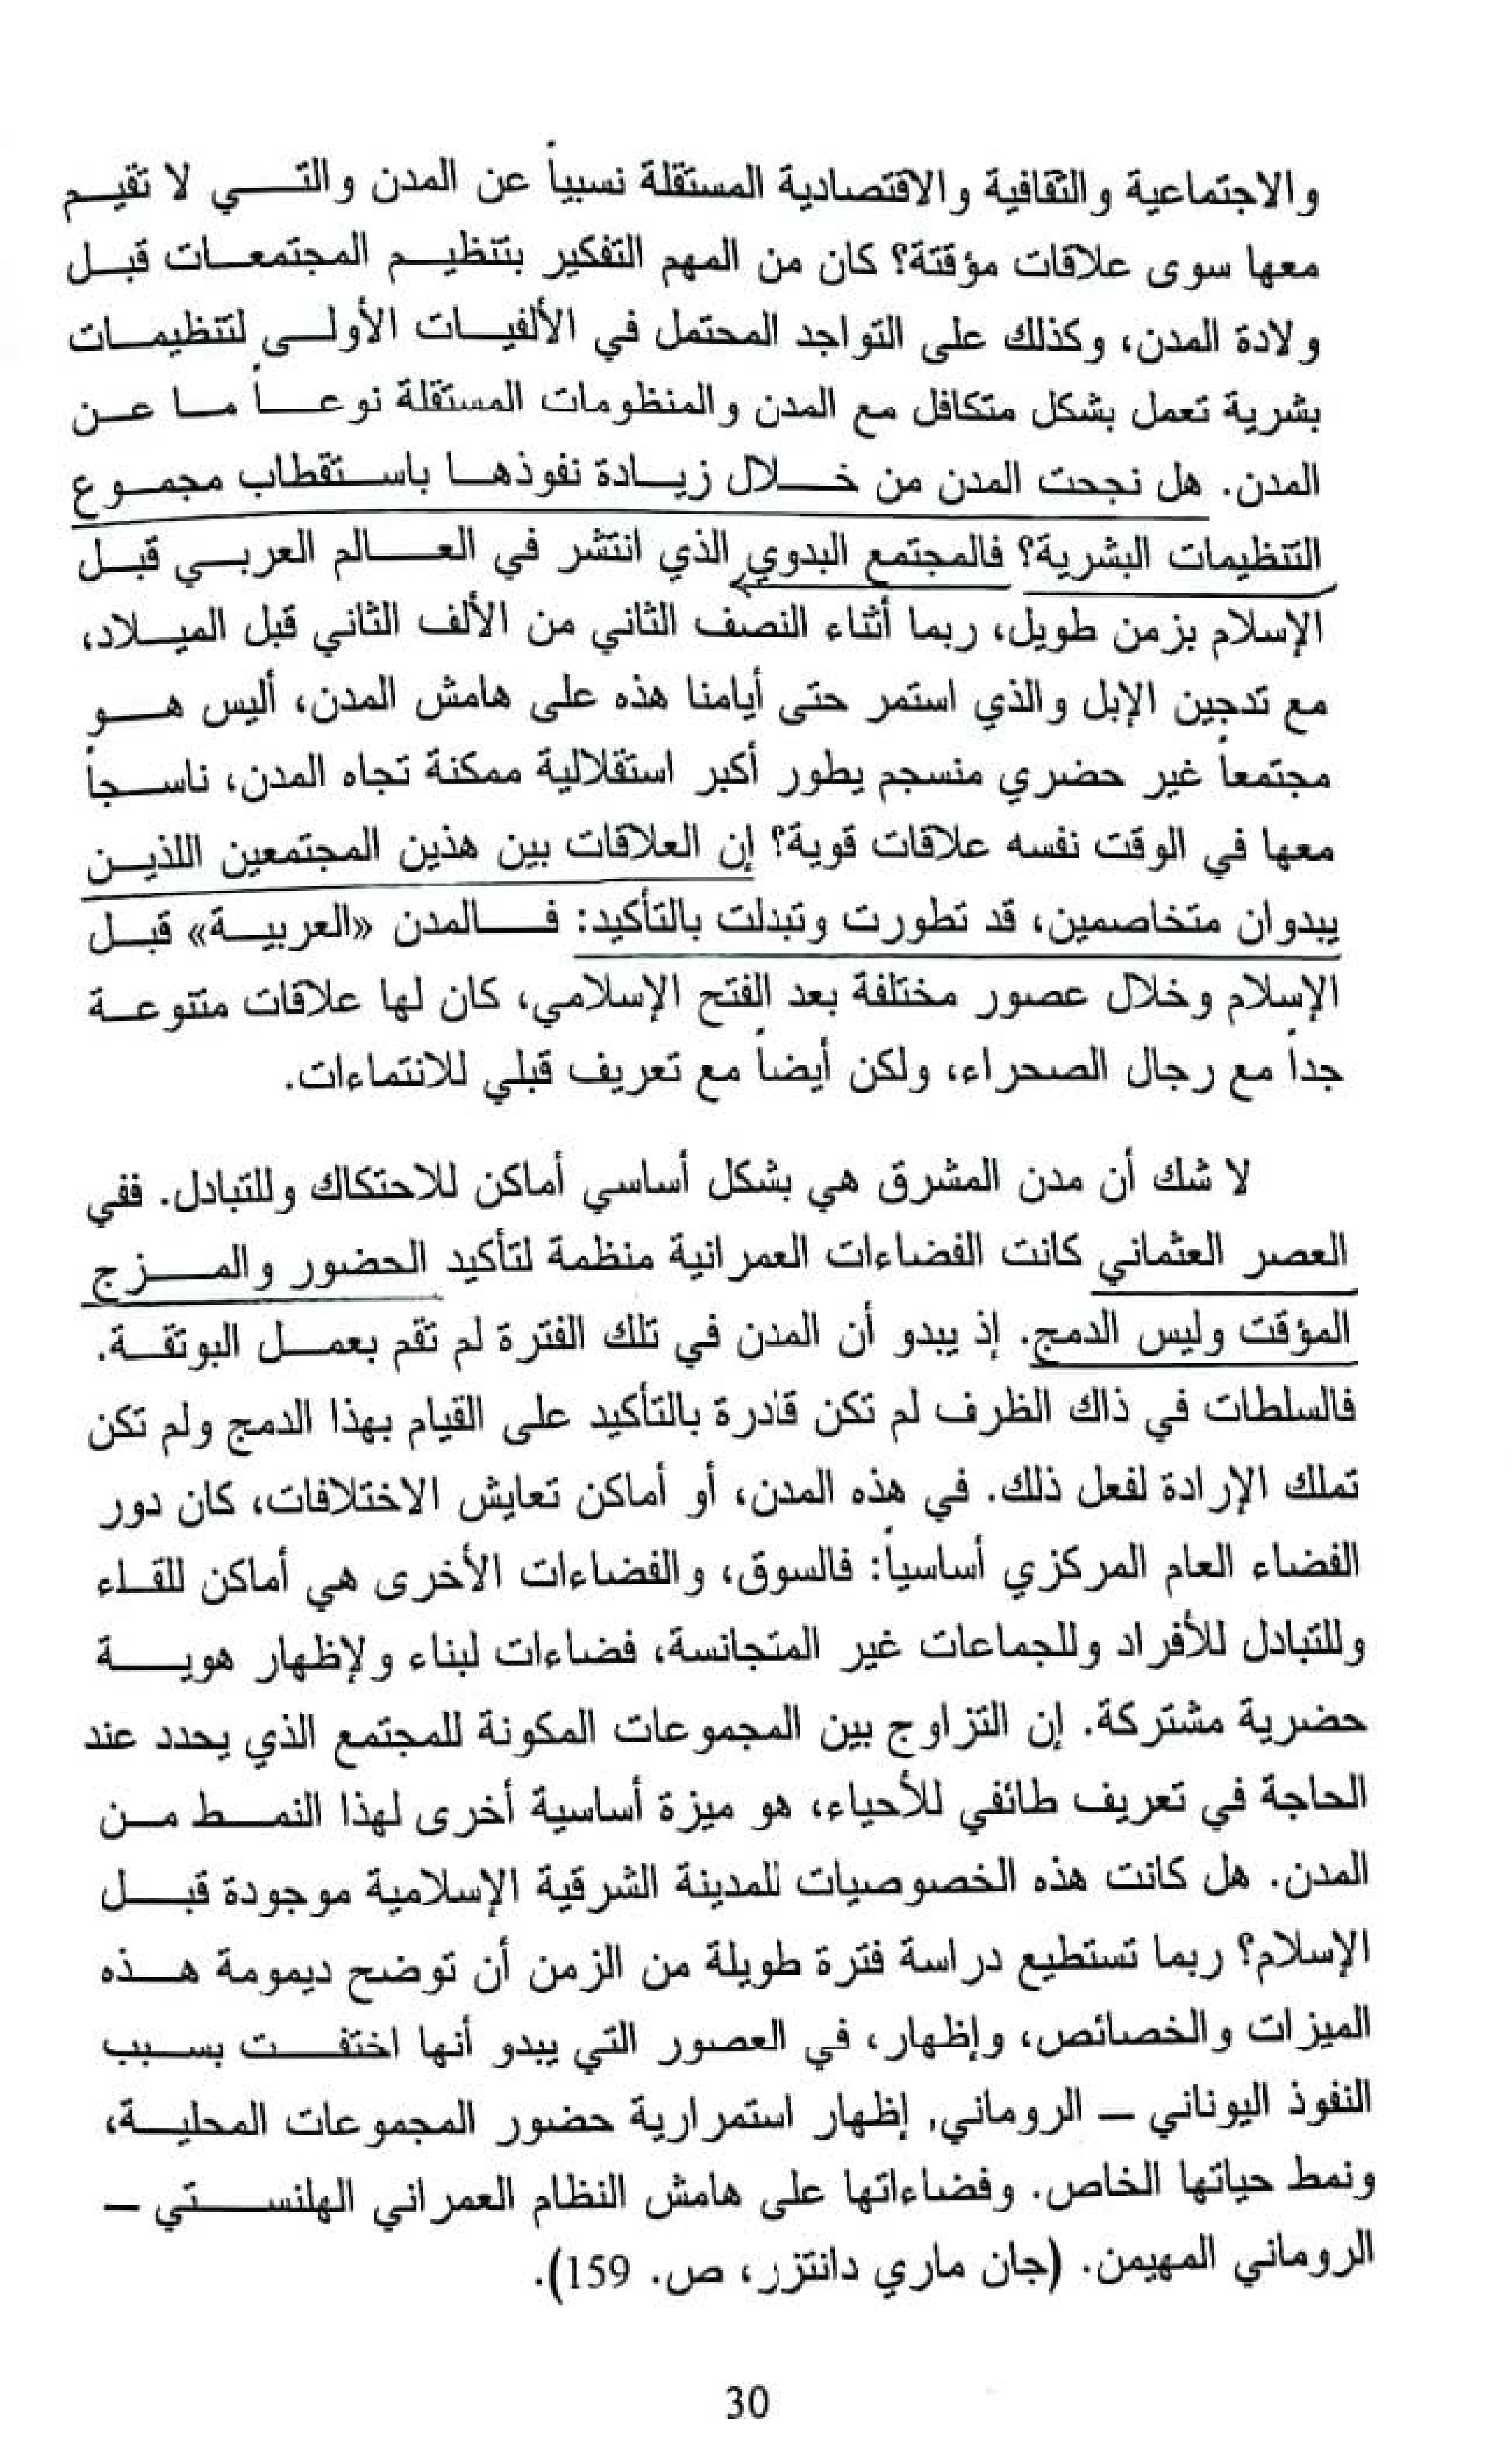 والاجتماعية والثقافية والاقتصادية المستقلة نسبياً عن المدن والتي لا تقيم
معها سوى علاقات مؤقتة؟ كان من المهم التفكير بتنظيم المجتمعات قبل
ولادة المدن، وكذلك على التواجد المحتمل في الألفيات الأولى لتنظيمات
بشرية تعمل بشكل متكافل مع المدن والمنظومات المستقلة نوعاً ما عن
المدن. هل نجحت المدن من خلال زيادة نفوذها باستقطاب مجموع
التنظيمات البشرية؟ فالمجتمع البدوي الذي انتشر في العالم العربي قبل
الإسلام بزمن طويل، ربما أثناء النصف الثاني من الألف الثاني قبل الميلاد،
مع تدجين الإبل والذي استمر حتى أيامنا هذه على هامش المدن، أليس هو
مجتمعاً غير حضري منسجم يطور أكبر استقلالية ممكنة تجاه المدن، ناسجاً
معها في الوقت نفسه علاقات قوية؟ إن العلاقات بين هذين المجتمعين اللذين
يبدوان متخاصمين، قد تطورت وتبدلت بالتأكيد: فالمدن «العربية» قبل
الإسلام وخلال عصور مختلفة بعد الفتح الإسلامي، كان لها علاقات متنوعة
جداً مع رجال الصحراء، ولكن أيضاً مع تعريف قبلي للانتماءات.
لا شك أن مدن المشرق هي بشكل أساسي أماكن للاحتكاك وللتبادل. ففي
العصر العثماني كانت الفضاءات العمرانية منظمة لتأكيد الحضور والمزج
المؤقت وليس الدمج. إذ يبدو أن المدن في تلك الفترة لم تقم بعمل البوتقة.
فالسلطات في ذاك الظرف لم تكن قادرة بالتأكيد على القيام بهذا الدمج ولم تكن
تملك الإرادة لفعل ذلك. في هذه المدن، أو أماكن تعايش الاختلافات، كان دور
الفضاء العام المركزي أساسياً: فالسوق، والفضاءات الأخرى هي أماكن للقاء
وللتبادل للأفراد وللجماعات غير المتجانسة، فضاءات لبناء ولإظهار هوية
حضرية مشتركة. إن التزاوج بين المجموعات المكونة للمجتمع الذي يحدد عند
الحاجة في تعريف طائفي للأحياء، هو ميزة أساسية أخرى لهذا النمط من
المدن. هل كانت هذه الخصوصيات للمدينة الشرقية الإسلامية موجودة قبل
الإسلام؟ ربما تستطيع دراسة فترة طويلة من الزمن أن توضح ديمومة هذه
الميزات والخصائص، وإظهار، في العصور التي يبدو أنها اختفت بسبب
النفوذ اليوناني – الروماني، إظهار استمرارية حضور المجموعات المحلية،
ونمط حياتها الخاص. وفضاءاتها على هامش النظام العمراني الهلنستي –
الروماني المهيمن. (جان ماري دانتزر، ص. 159).
30